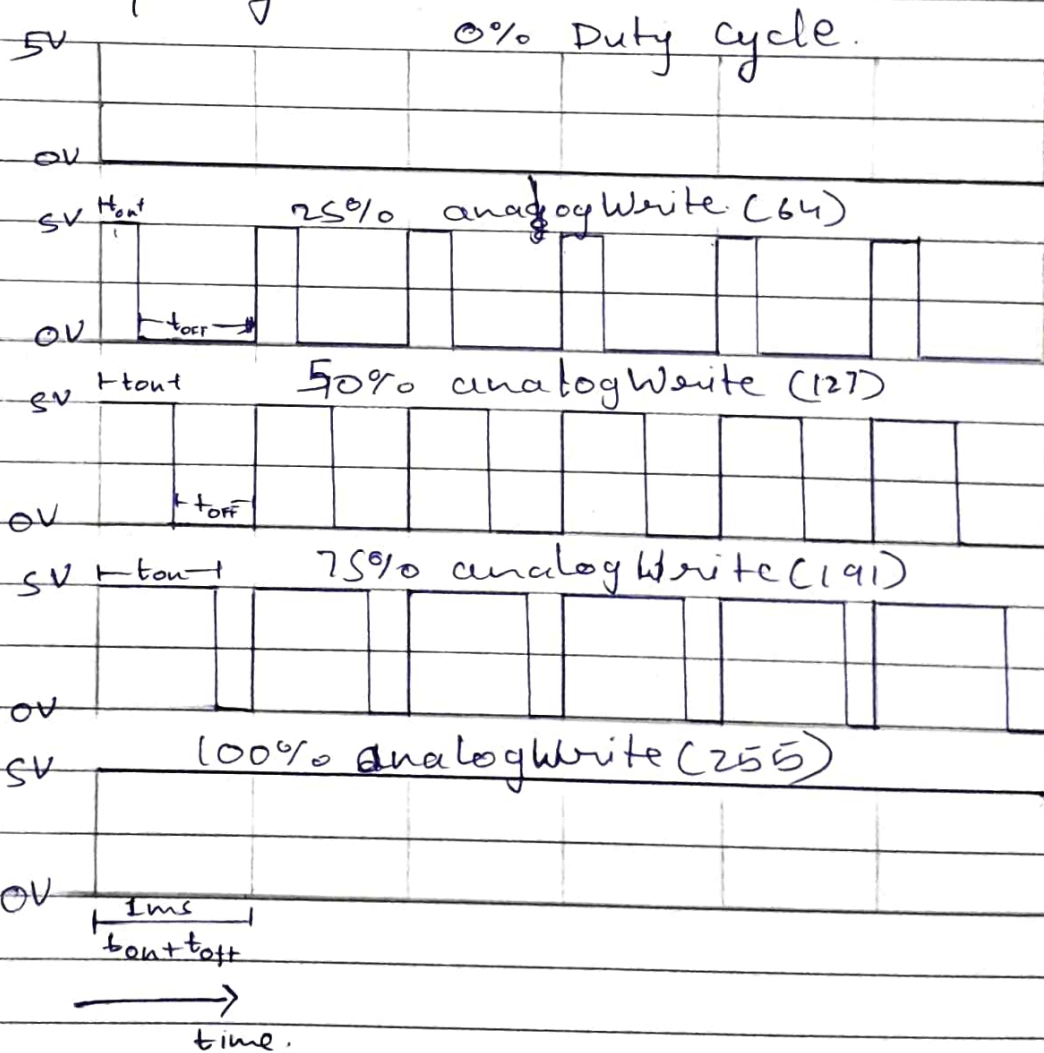 0% Duty cycle.
5V
0V
ton
25% analogWrite (64)
5V
tOFF
0V
ton
50% analogWrite (127)
5V
tOFF
0V
ton
75% analogWrite (191)
5V
0V
100% analogWrite (255)
5V
0V
1ms
ton + toff
time.